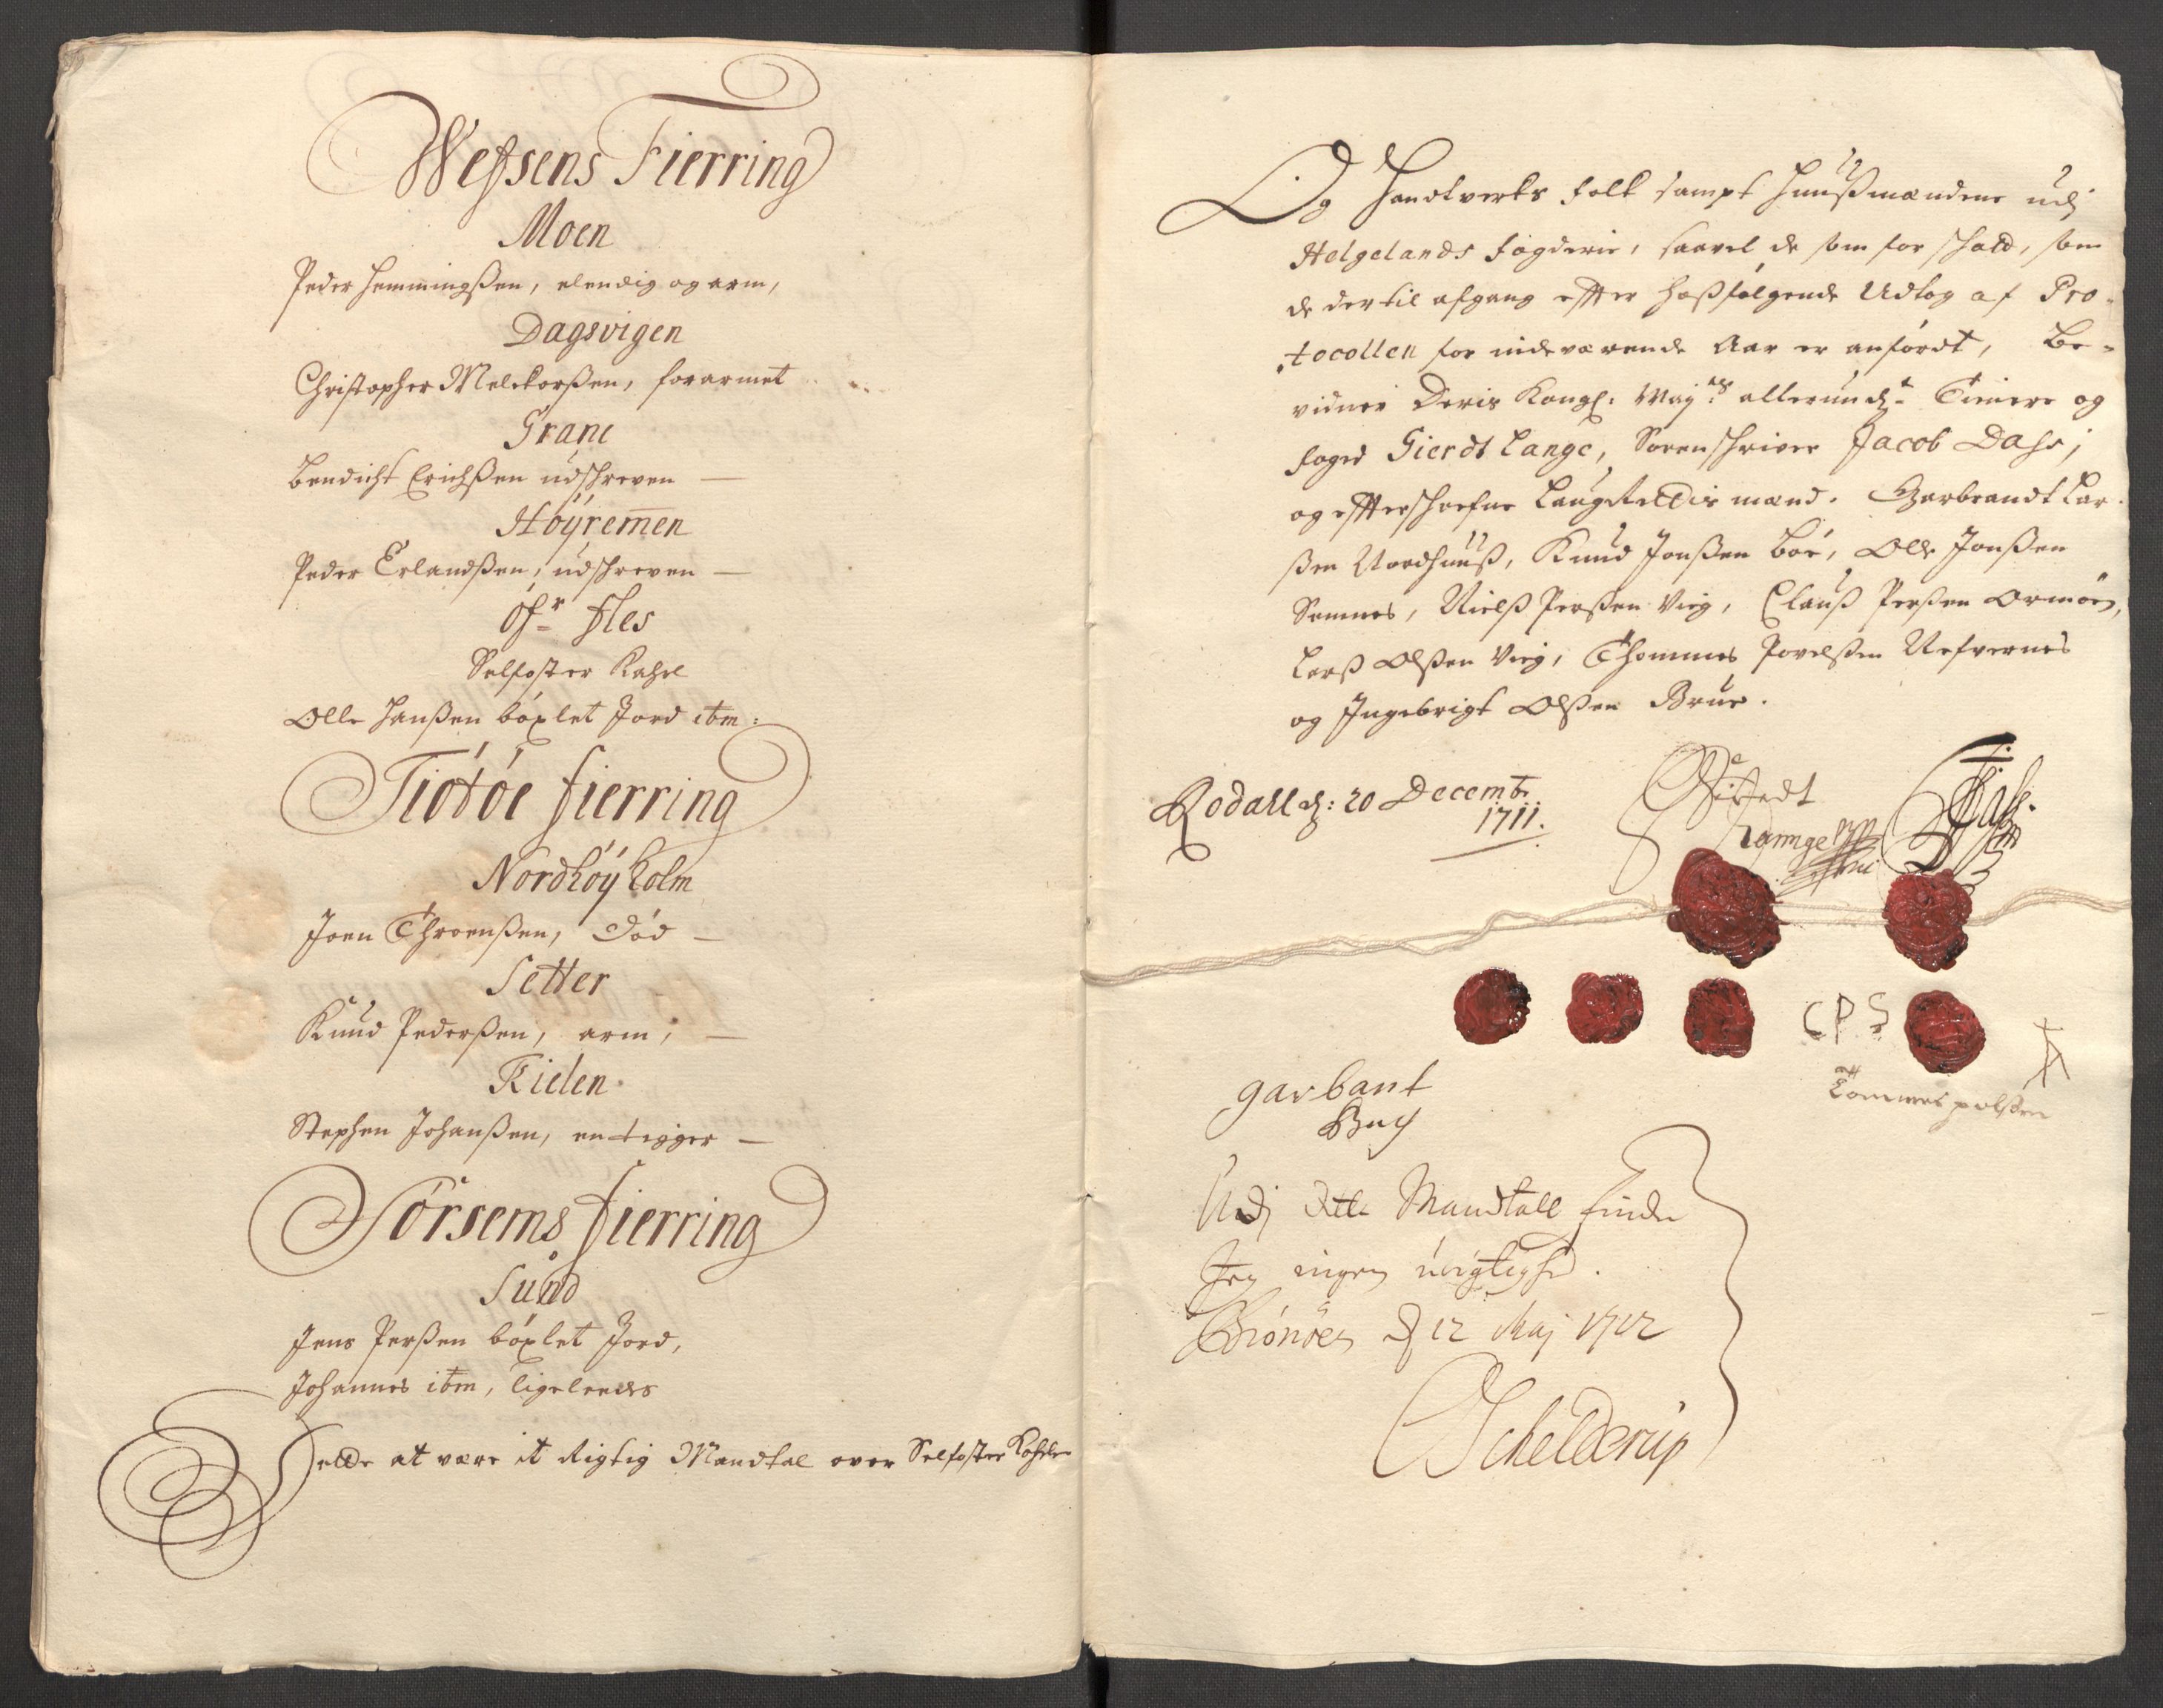 Wefsens Fierring
Moen
Peder Hemmingßen, elendig og arm,
Dagsvigen
Christopher Melckorßen, forarmet
Grane
Bendicht Erichßen udschreven —
Höÿremen
Peder Erlandßen, udschreven —
Øfr fles
Selfoster Kahrl
Olle Hanßen böxlet Jord ibm:
Tiøtøe fierring
Nordhöÿholm
Joen Throenßen, död —
Setter
Knud Pederßen, arm, —
Kielen
Stephen Johanßen, en tigger —
Sørsems fierring
Sund
Jens Perßen böxlet Jord,
Johannes ibm, ligeleedes
Dette at være it Rigtig Mandtal over Selfoster Kahrle
Og Handtverks folk sampt Huußmændene udj
Helgelands fogderie, saavel de som for schatt, som
de der til afgang effter hoßfölgende Udtog af Pro-
tocollen for indeværende Aar er anfördt, Be-
vidner Deris Kongl: Mayts: allerundt Tienere og
foged Gierdt Lange, Sorenschriver Jacob Dass,
og effterschrefne Laugrettis mænd. Garbrandt Lar-
ßen Nordhuuß, Knud Jonßen Böe, Olle Jonßen
Semnes, Nielß Perßen Vig, Clauß Perßen Ormöen,
Larß Olßen Vig, Thommes Povelßen Refsernes
og Ingebrigt Olßen Brue.
Rodall d: 20 Decembr:
1711.
Gierdt
Lannge
CPS
Tommes polsen
garbant
Udj dette Mandtall finder
Jeg ingen urigtighed.
Brönöen d 12 Maj 1712
Schelderup